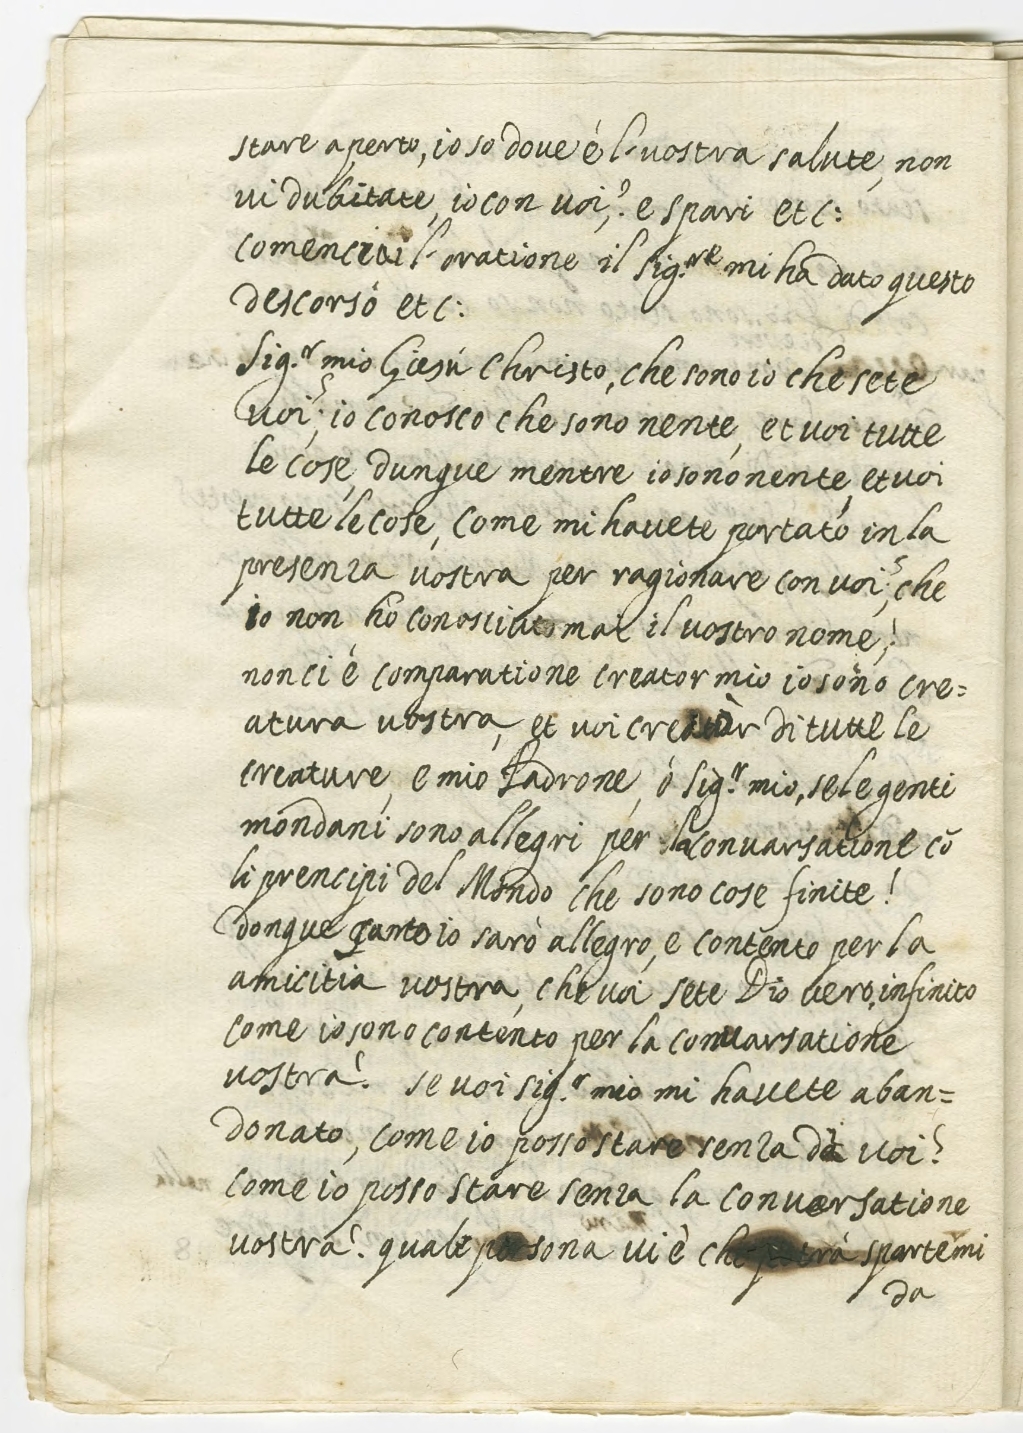 stare aperto, io so dove é l'vostra salute, non
vi dubitate, io con voi,? e spari etc:
comenciò il oratione il sig.re mi ha dato questo
descorso etc:
sig.r mio Giesú Christo, che sono io che sete
voi? io conosco che sono nente, et voi tutte
le cose, dunque mentre io sono nente, et voi
tutte le cose, come mi havete portato in la
presenza vostra per ragionare con voi? che
io non ho conosciuto mai il vostro nome!
non ci é comparatione creator mio io sono cre=
atura vostra, et voi creator di tutte le
creature, e mio Padrone, ó sig.r mio, se le genti
mondani sono allegri per la convarsatione cō
li prencipi del Mondo che sono cose finite!
donque qanto io saró allegro, e contento per la
amicitia vostra, che voi sete Dio vero, infinito
come io sono contento per la convarsatione
vostra! se voi sig.r mio mi havete aban=
donato, come io posso stare senza di voi?
come io posso stare senza la conversatione
vostra! quale persona vi è che potrà spartemi
da